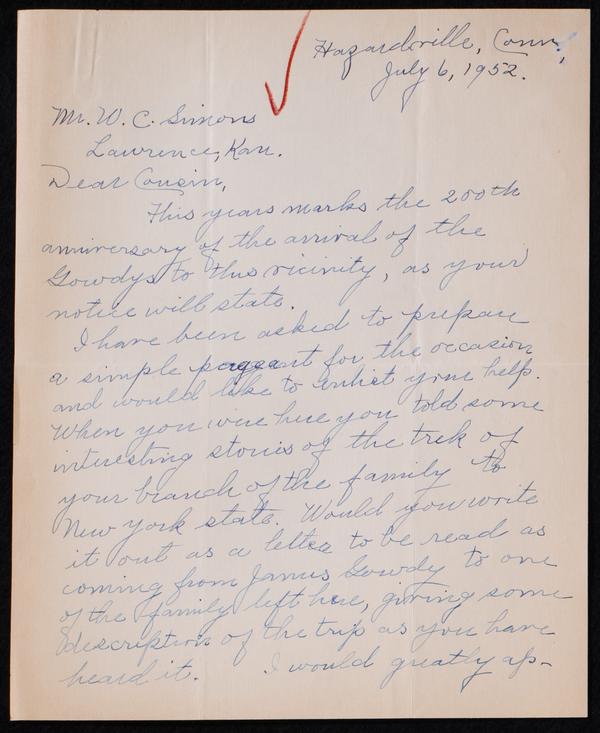 Hazardville, Conn.,
July 6, 1952.
Mr. W. C. Simons
Lawrence, Kan.
Dear Cousin,
This years marks the 200th
anniversary of the arrival of the
Gowdys to this vicinity, as your
notice will state.
I have been asked to prepare
a simple pageant for the occasion
and would like to enlist your help.
When you were here you told some
interesting stories of the trek of
your branch of the family to
New York state. Would you write
it out as a letter to be read as
coming from James Gowdy to one
of the family left here, giving some
description of the trip as you have
heard it. I would greatly ap-